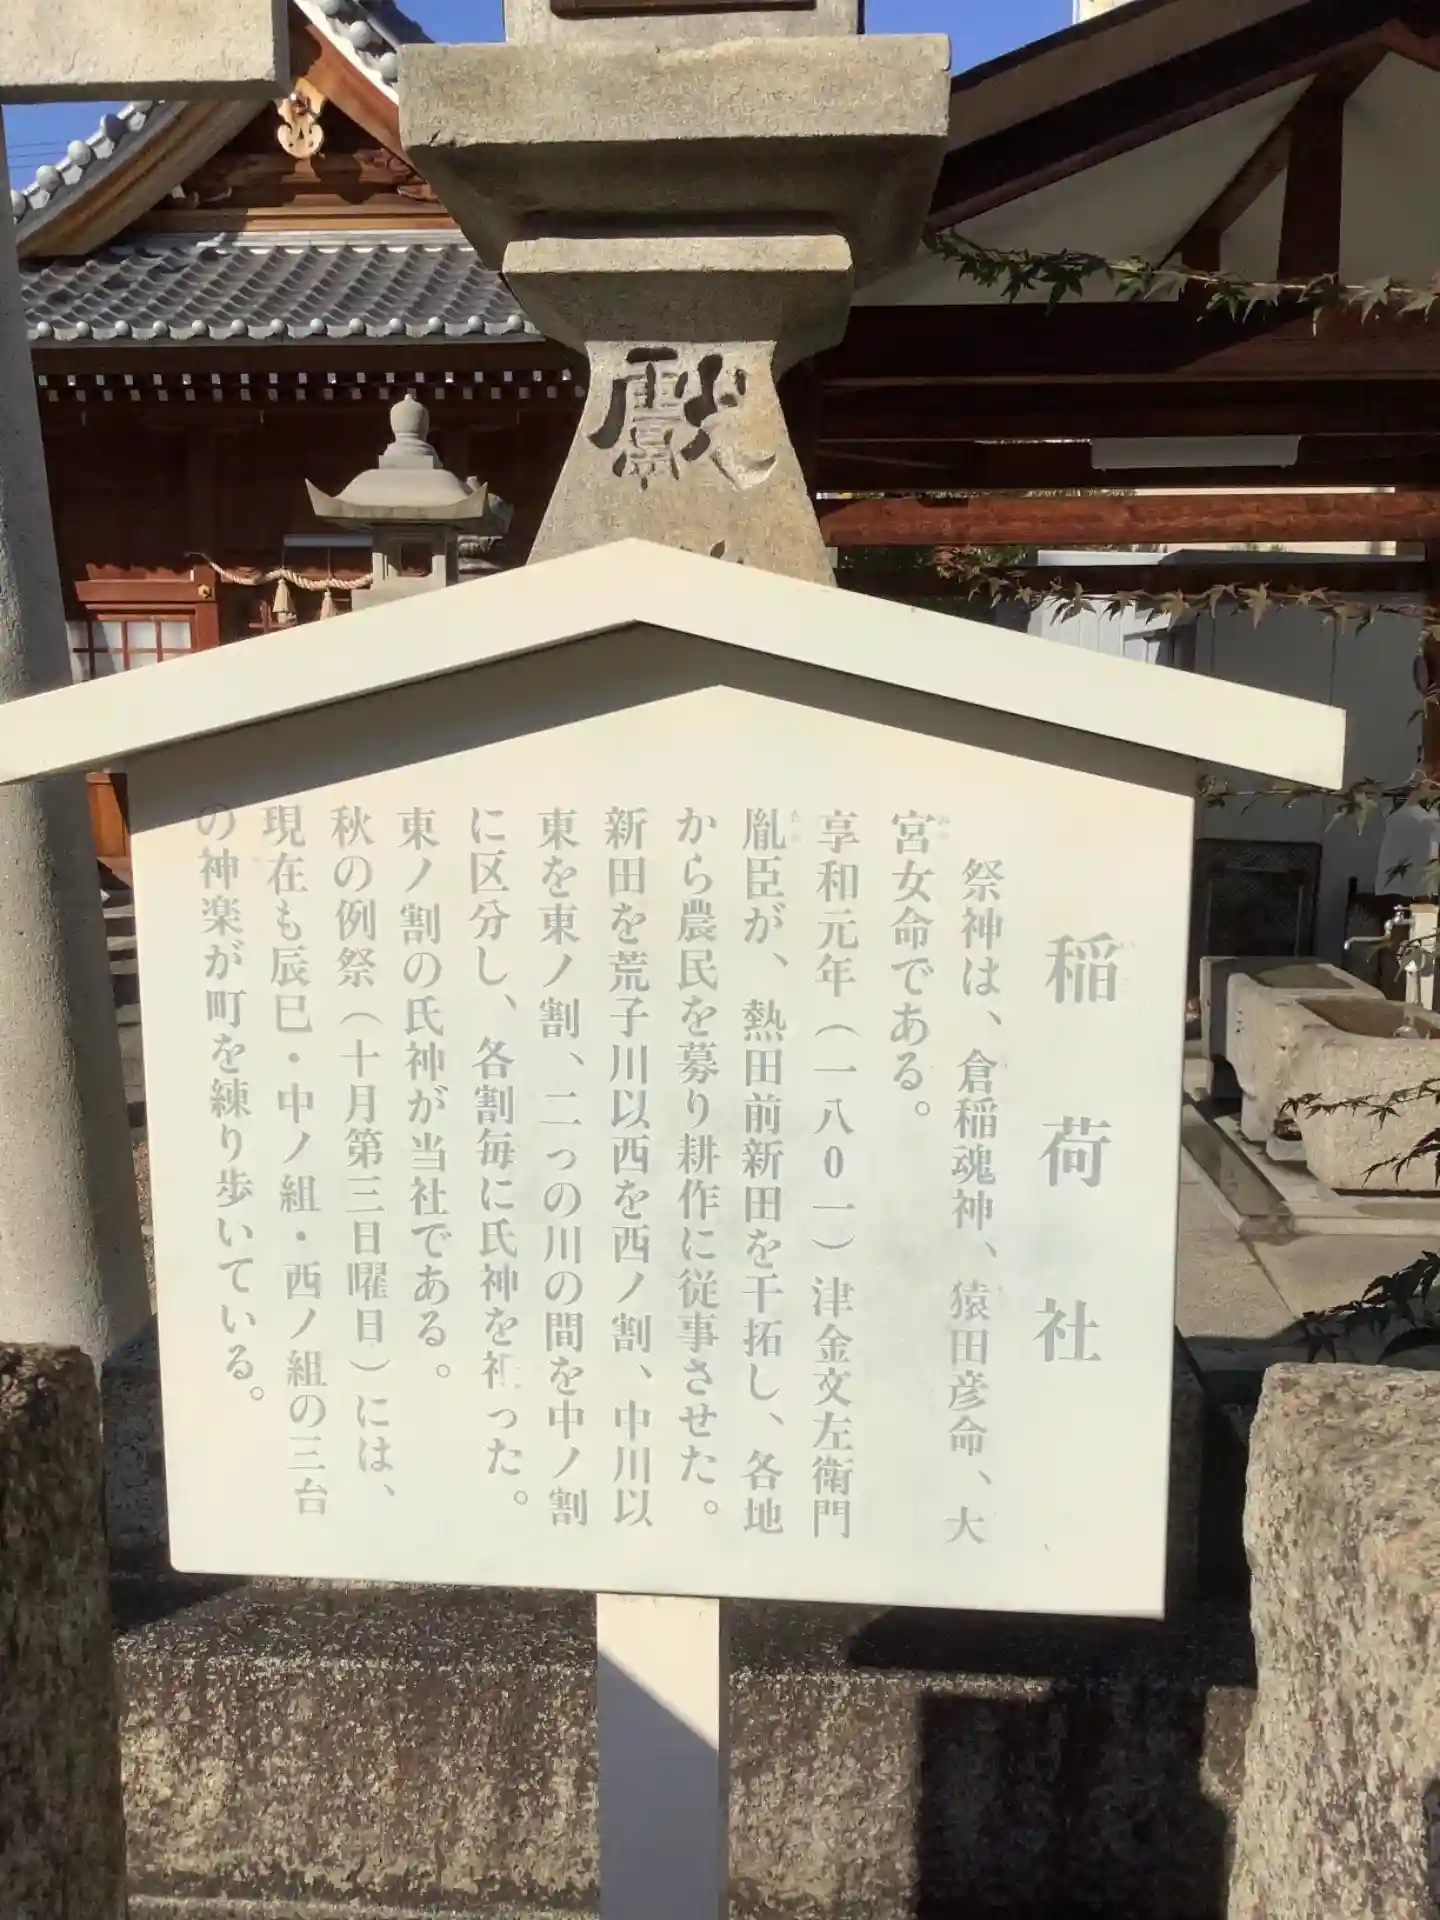 獻
稲荷社
祭神は、倉稲魂神、猿田彦命、大
宮女命である。
享和元年（一八0一）津金文左衛門
胤臣が、熱田前新田を干拓し、各地
から農民を募り耕作に従事させた。
新田を荒子川以西を西ノ割、中川以
東を東ノ割、二つの川の間を中ノ割
に区分し、各割毎に氏神を祀った。
東ノ割の氏神が当社である。
秋の例祭（十月第三日曜日）には、
現在も辰巳・中ノ組・西ノ組の三台
の神楽が町を練り歩いている。